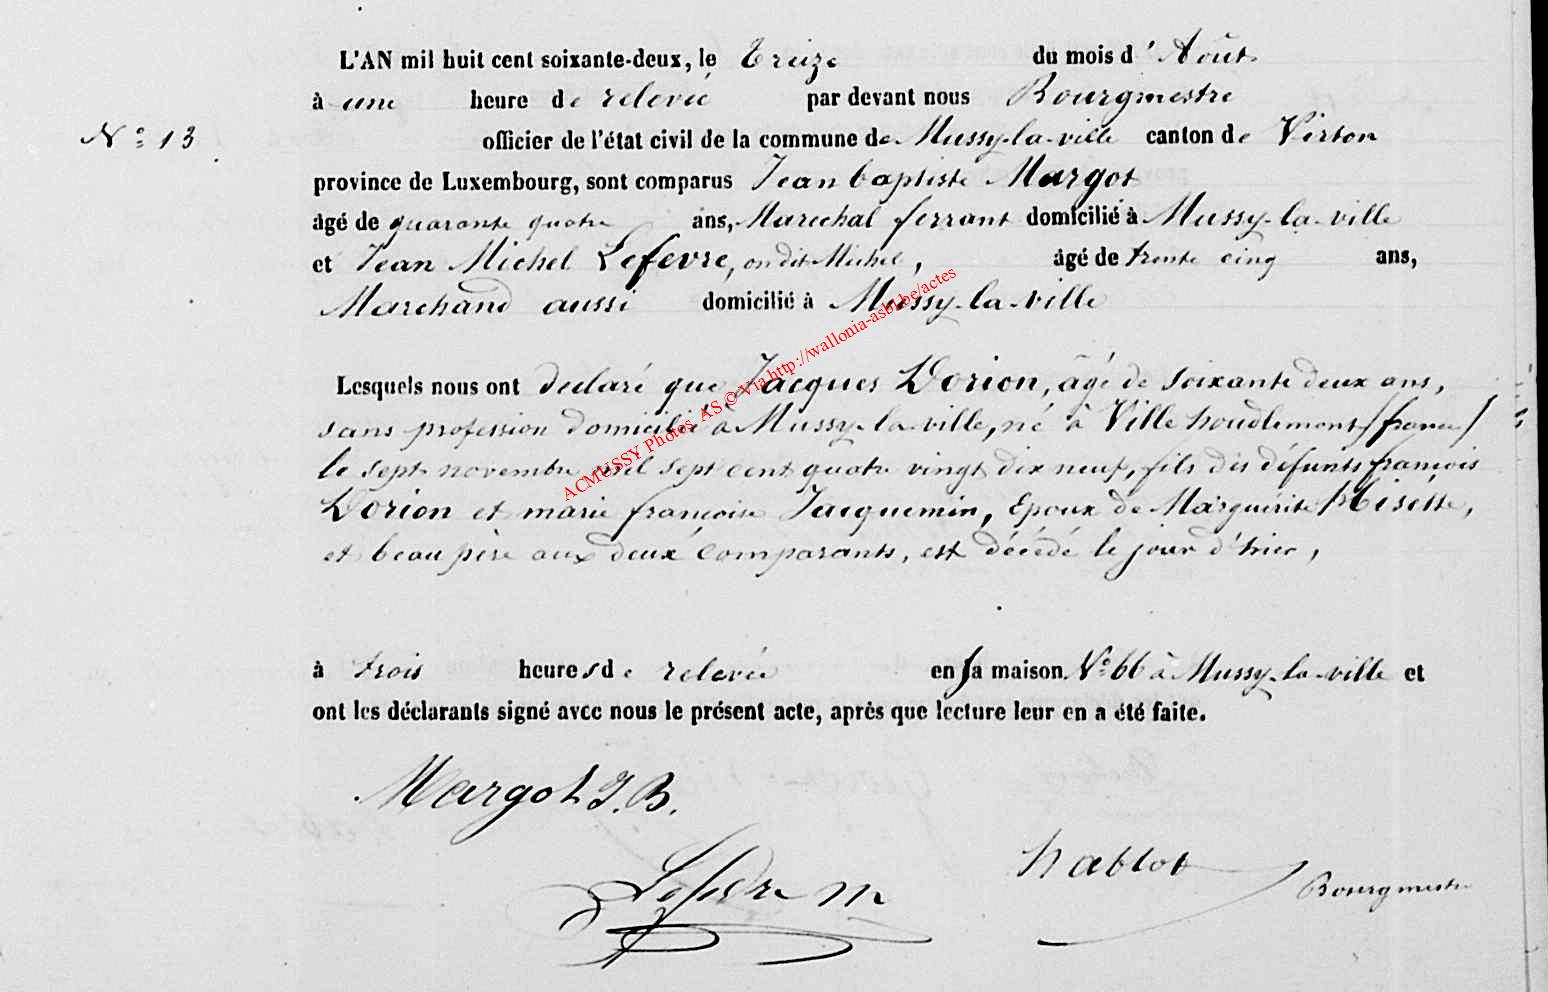 L'AN mil huit cent soixante-deux, le Treize du mois d'Août
à une heure de relevée par devant nous Bourgmestre
N° 13 officier de l'état civil de la commune de Mussy-la-ville canton de Virton
province de Luxembourg, sont comparus Jean baptiste Margot
âgé de quarante quatre ans, Marechal ferrant domicilié à Mussy-la-ville
et Jean Michel Lefevre, on dit Michel, âgé de trente cinq ans,
Marchand aussi domicilié à Mussy-la-ville
Lesquels nous ont declaré que Jacques Dorion, âgé de soixante deux ans,
sans profession domicilié à Mussy-la-ville, né à Ville houdlemont (france)
le sept novembre mil sept cent quatre vingt dix neuf, fils des défunts françois
Dorion et marie françoise Jacquemin, Epoux de Marguérite
et beau père aux deux Comparants, est décédé le jour d'hier,
à trois heures de relevée en sa maison N° 66 à Mussy-la-ville et
ont les déclarants signé avec nous le présent acte, après que lecture leur en a été faite.
Margot J.B.
Lefevre M
hablot
Bourgmestre
ACMUSSY Photos AS © Via http://wallonia-asbl.be/actes